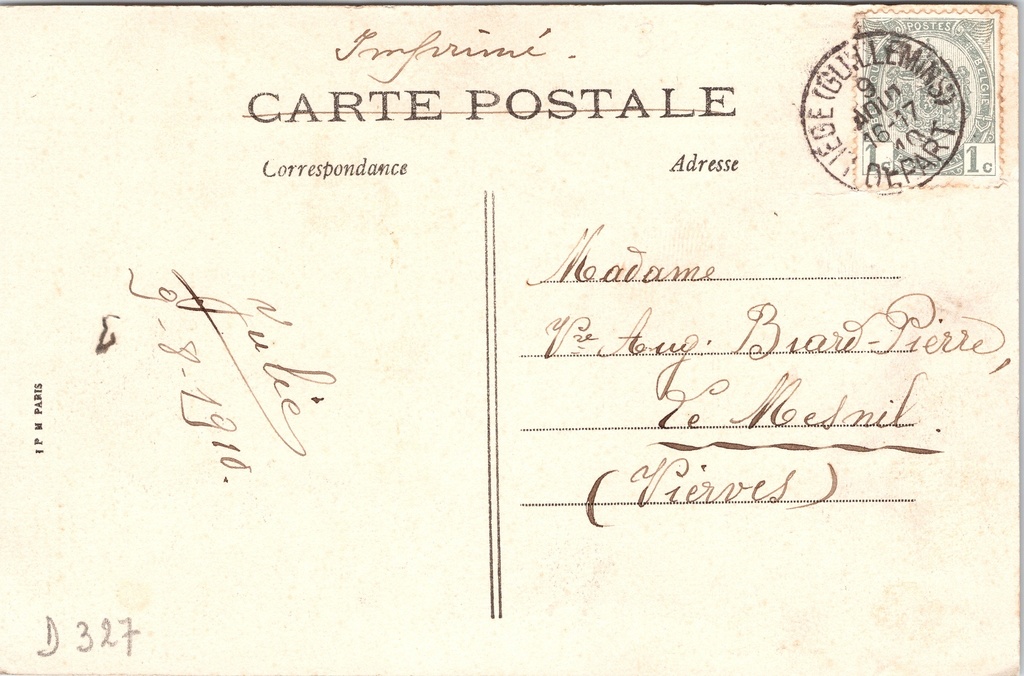 Imprimé.
CARTE POSTALE
Correspondance
Adresse
POSTES
BELGIE
1c 1c
LIÉGE (GUILLEMINS)
9
AOUT
16-17
10
DÉPART
Madame
Vve Aug. Biard-Pierre,
Le Mesnil.
(Vierves)
Julie
9-8-1910.
I P M PARIS
D 327